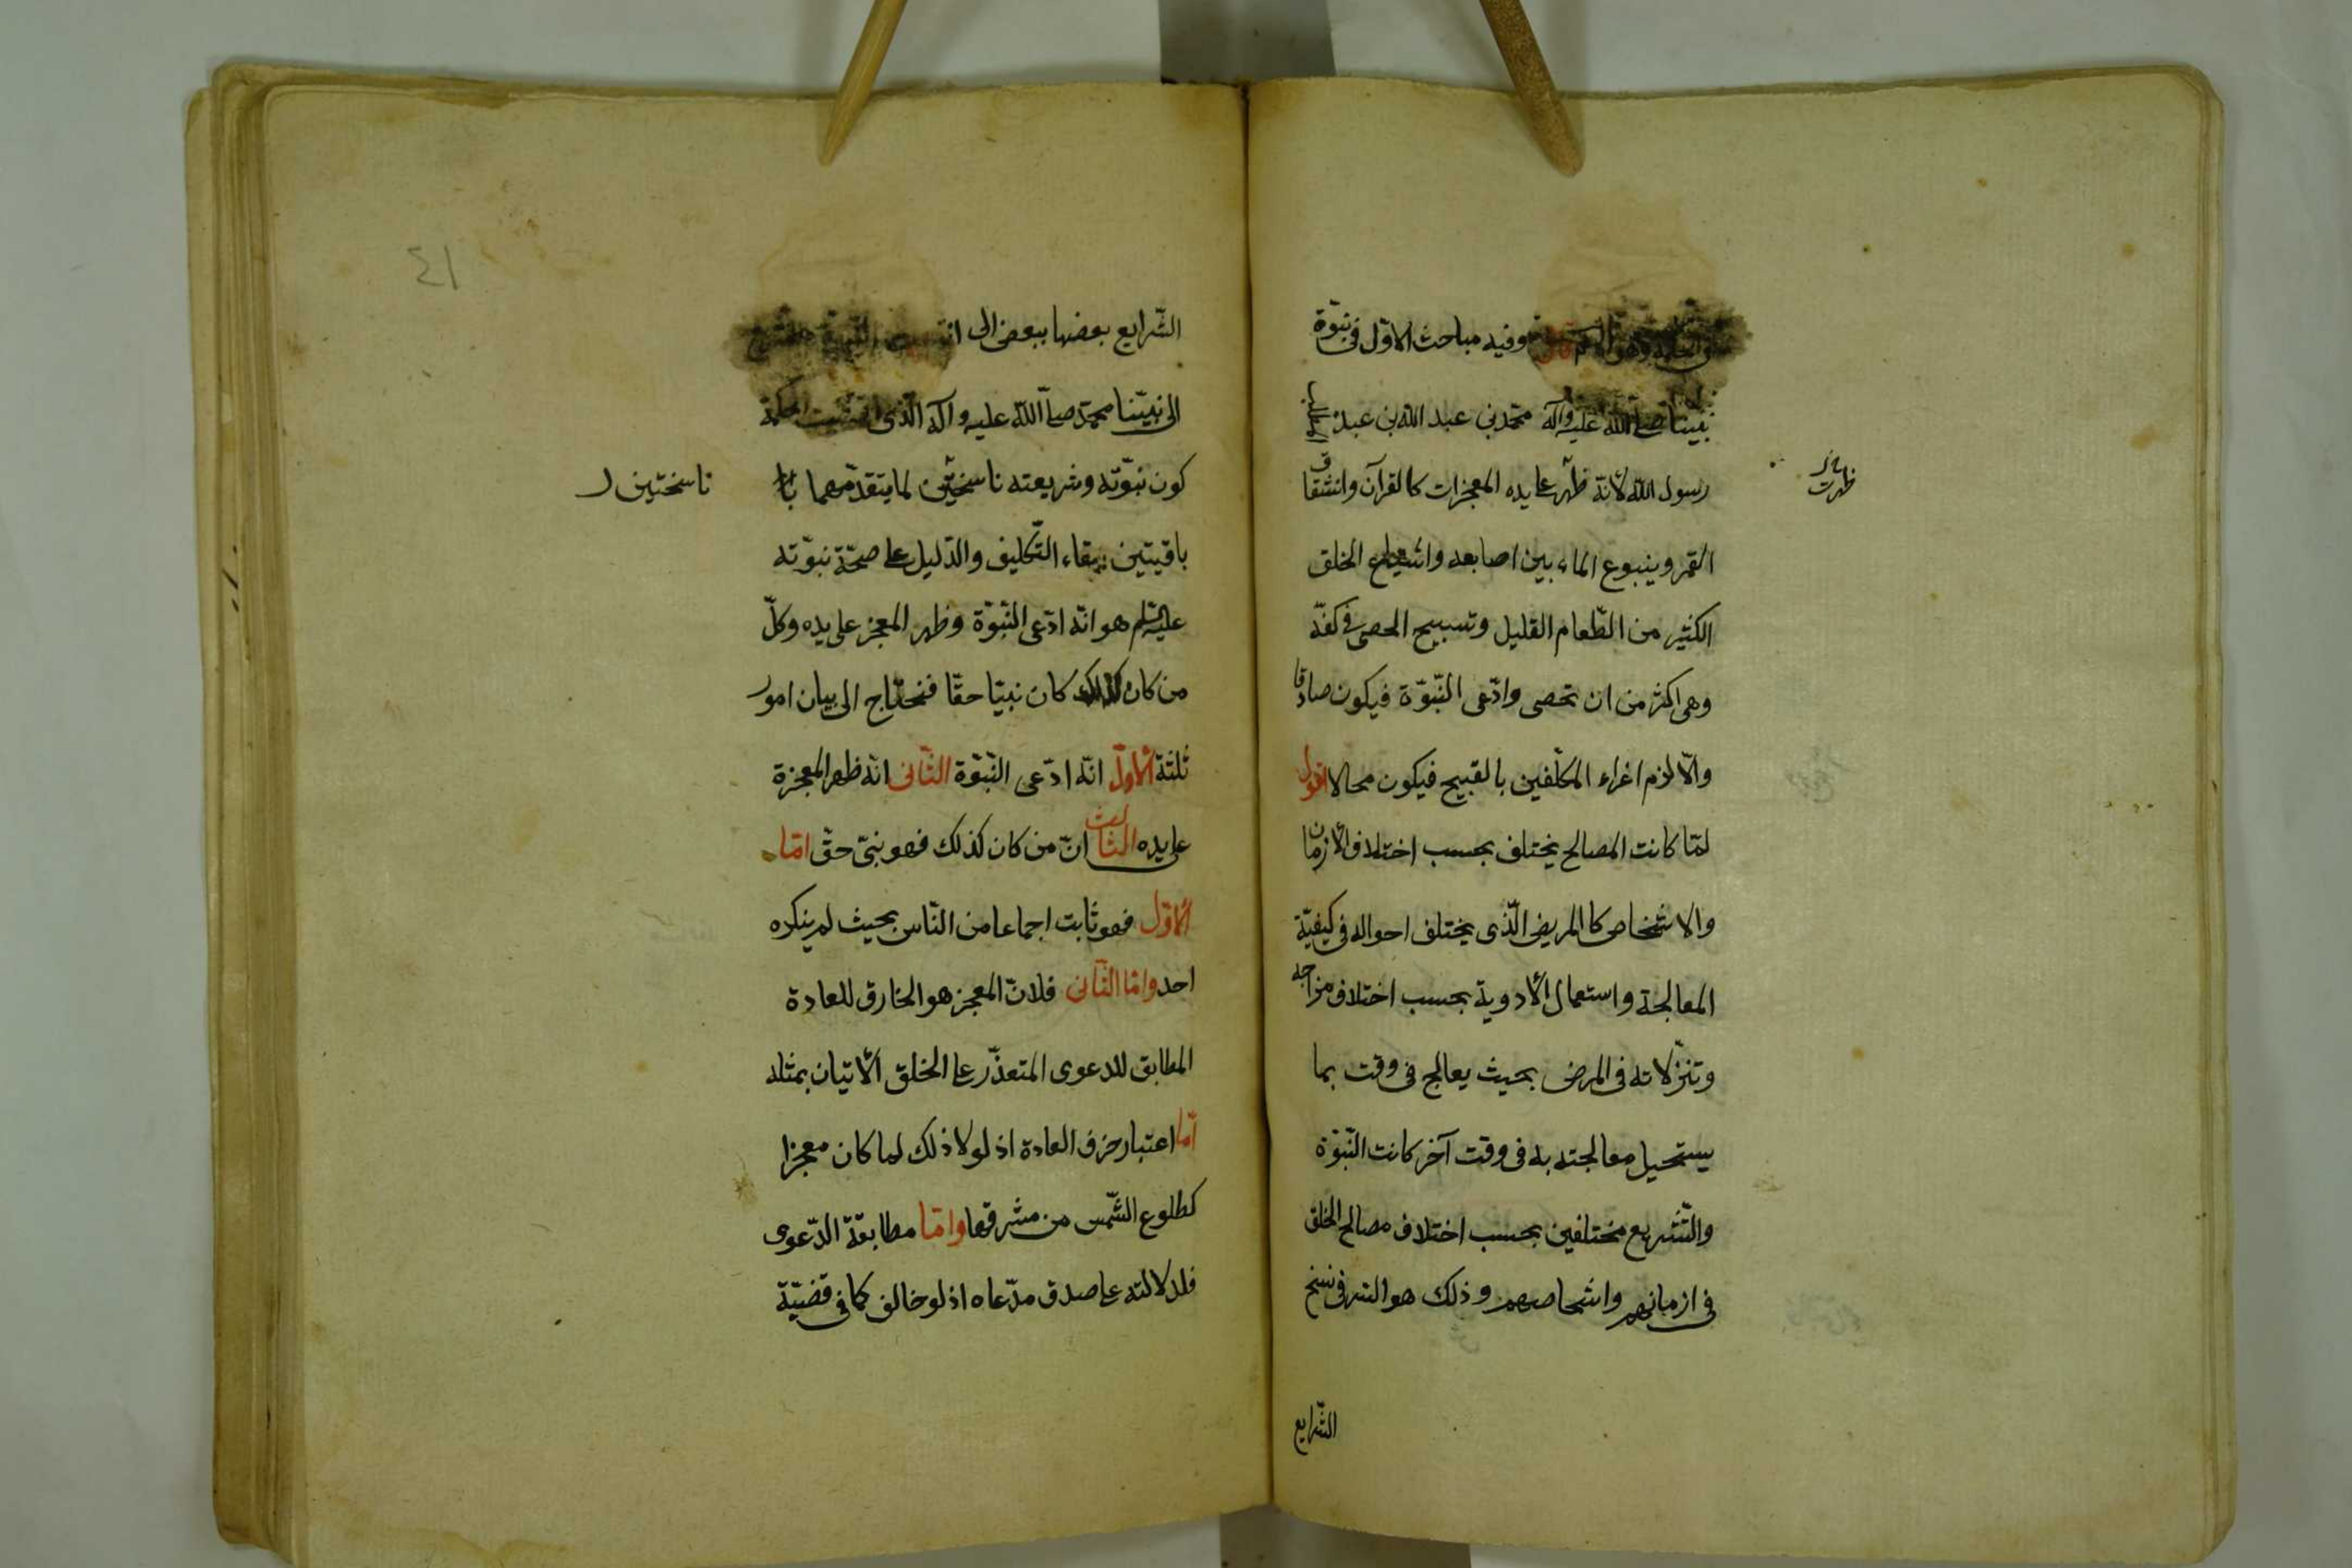 وفيه مباحث الاوّل فى نبوّة
نبيّنا صلے اللّه عليه وآله محمّد بن عبد اللّه بن عبد المطلب
رسول اللّه لانّه ظهر علے يده المعجزات كالقرآن وانشقاق
ظهرت
القمر وينبوع الماء بين اصابعه واشباع الخلق
الكثير من الطّعام القليل وتسبيح الحصى فى كفّه
وهى اكثر من ان تحصى وادّعى النّبوّة فيكون صادقا
والّا لزم اغراء المكلّفين بالقبيح فيكون محالا اقول
لمّا كانت المصالح يختلف بحسب اختلاف الأزمان
والاشخاص كالمريض الّذى يختلف احواله فى كيفيّة
المعالجة واستعمال الأدوية بحسب اختلاف مزاجه
وتنزّلاته فى المرض بحيث يعالج فى وقت بما
يستحيل معالجته به فى وقت آخر كانت النّبوّة
والتّشريع مختلفين بحسب اختلاف مصالح الخلق
فى ازمانهم واشخاصهم وذلك هو السّر فى نسخ
الشّرايع
٤١
الشّرايع بعضها ببعض الى ان
الى نبيّنا محمّد صلے اللّه عليه وآله الّذى اقتضيت الحكمة
كون نبوّته وشريعته ناسختين لما يتقدّمهما
ناسختين
باقيتين ببقاء التّكليف والدّليل علے صحّة نبوّته
عليه السّلم هو انّه ادّعى النّبوّة وظهر المعجز على يده وكلّ
من كان كذلك كان نبيّا حقّا فنحتاج الى بيان امور
ثلثة الأوّل انّه ادّعى النّبوّة الثّانى انّه ظهر المعجزة
على يده الثالث انّ من كان كذلك فهو نبىّ حقّ امّا
الأوّل فهو ثابت اجماعا من النّاس بحيث لم ينكره
احد وامّا الثّانى فلانّ المعجز هو الخارق للعادة
المطابق للدعوى المتعذّر علے الخلق الأتيان بمثله
امّا اعتبار خرق العادة اذ لولا ذلك لما كان معجزا
كطلوع الشّمس من مشرقها وامّا مطابقة الدّعوى
فلدلالته علے صدق مدّعاه اذ لو خالف كما فى قضيّة